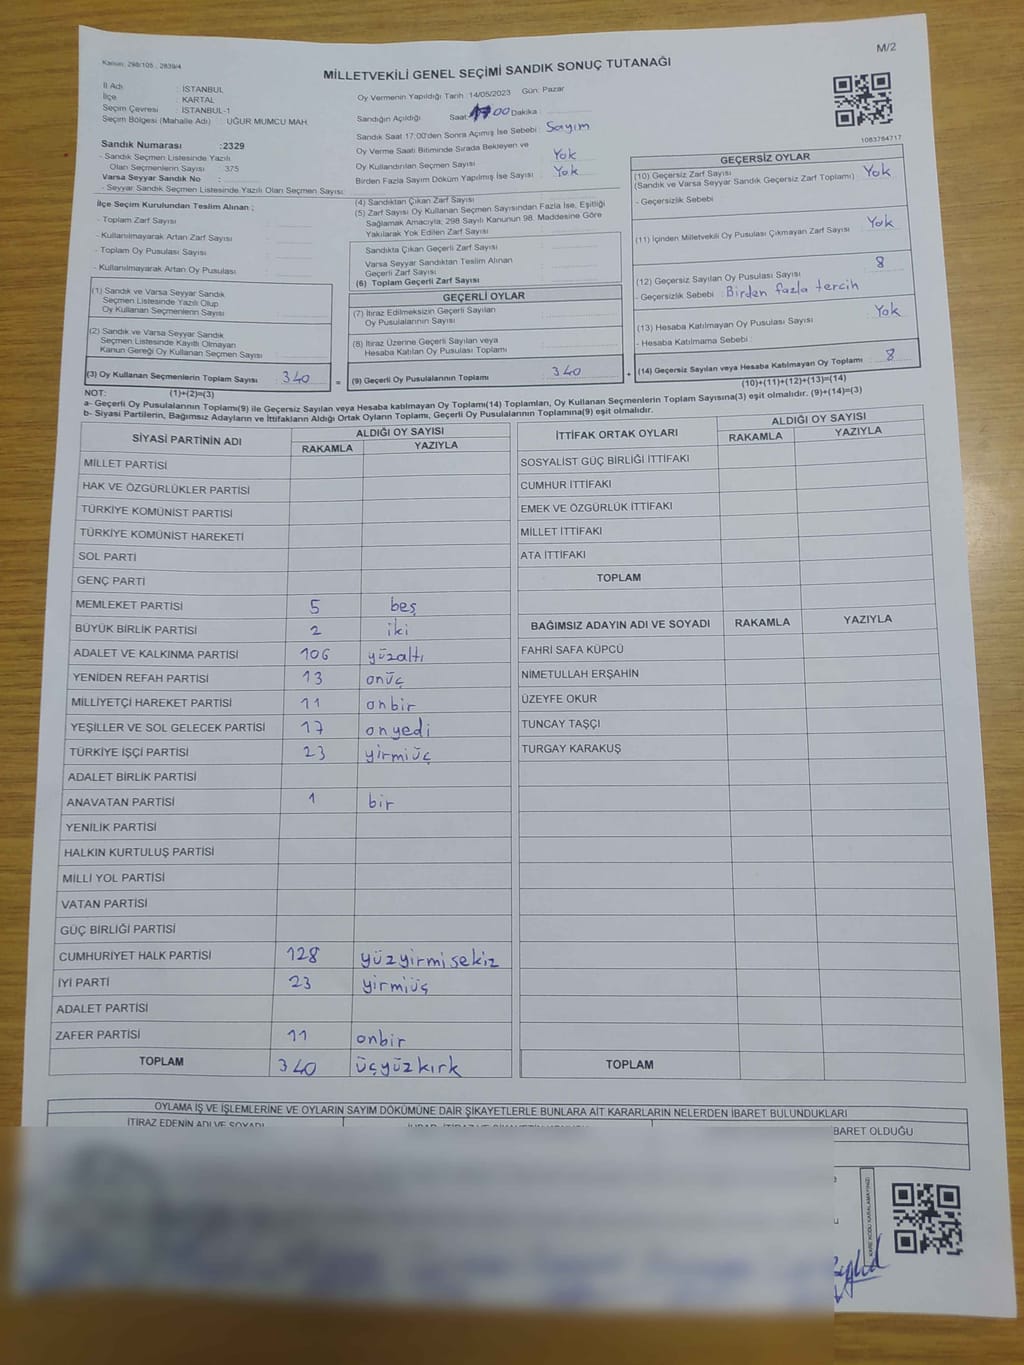 M/2
Kanun: 298/105 ; 2839/4
MİLLETVEKİLİ GENEL SEÇİMİ SANDIK SONUÇ TUTANAĞI
İl Adı : İSTANBUL
İlçe : KARTAL
Seçim Çevresi : İSTANBUL-1
Seçim Bölgesi (Mahalle Adı) : UĞUR MUMCU MAH.
Sandık Numarası :2329
- Sandık Seçmen Listesinde Yazılı
Olan Seçmenlerin Sayısı : 375
Varsa Seyyar Sandık No :
- Seyyar Sandık Seçmen Listesinde Yazılı Olan Seçmen Sayısı:
İlçe Seçim Kurulundan Teslim Alınan ;
- Toplam Zarf Sayısı
- Kullanılmayarak Artan Zarf Sayısı
- Toplam Oy Pusulası Sayısı
- Kullanılmayarak Artan Oy Pusulası
(1) Sandık ve Varsa Seyyar Sandık
Seçmen Listesinde Yazılı Olup
Oy Kullanan Seçmenlerin Sayısı
(2) Sandık ve Varsa Seyyar Sandık
Seçmen Listesinde Kayıtlı Olmayan
Kanun Gereği Oy Kullanan Seçmen Sayısı
(3) Oy Kullanan Seçmenlerin Toplam Sayısı : 340
Oy Vermenin Yapıldığı Tarih : 14/05/2023 Gün: Pazar
Sandığın Açıldığı Saat: 17 00 Dakika :
Sandık Saat 17:00'den Sonra Açımış İse Sebebi : Sayım
Oy Verme Saati Bitiminde Sırada Bekleyen ve
Oy Kullandırılan Seçmen Sayısı : Yok
Birden Fazla Sayım Döküm Yapılmış İse Sayısı : Yok
(4) Sandıktan Çıkan Zarf Sayısı
(5) Zarf Sayısı Oy Kullanan Seçmen Sayısından Fazla İse, Eşitliği
Sağlamak Amacıyla, 298 Sayılı Kanunun 98. Maddesine Göre
Yakılarak Yok Edilen Zarf Sayısı
Sandıkta Çıkan Geçerli Zarf Sayısı
Varsa Seyyar Sandıktan Teslim Alınan
Geçerli Zarf Sayısı
(6) Toplam Geçerli Zarf Sayısı
GEÇERLİ OYLAR
(7) İtiraz Edilmeksizin Geçerli Sayılan
Oy Pusulalarının Sayısı
(8) İtiraz Üzerine Geçerli Sayılan veya
Hesaba Katılan Oy Pusulası Toplamı
= (9) Geçerli Oy Pusulalarının Toplamı : 340
1083784717
GEÇERSİZ OYLAR
(10) Geçersiz Zarf Sayısı
(Sandık ve Varsa Seyyar Sandık Geçersiz Zarf Toplamı) : Yok
- Geçersizlik Sebebi
(11) İçinden Milletvekili Oy Pusulası Çıkmayan Zarf Sayısı : Yok
(12) Geçersiz Sayılan Oy Pusulası Sayısı : 8
- Geçersizlik Sebebi : Birden fazla tercih
(13) Hesaba Katılmayan Oy Pusulası Sayısı : Yok
- Hesaba Katılmama Sebebi :
+ (14) Geçersiz Sayılan veya Hesaba Katılmayan Oy Toplamı : 8
NOT: (1)+(2)=(3)
(10)+(11)+(12)+(13)=(14)
a- Geçerli Oy Pusulalarının Toplamı(9) ile Geçersiz Sayılan veya Hesaba katılmayan Oy Toplamı(14) Toplamları, Oy Kullanan Seçmenlerin Toplam Sayısına(3) eşit olmalıdır. (9)+(14)=(3)
b- Siyasi Partilerin, Bağımsız Adayların ve İttifakların Aldığı Ortak Oyların Toplamı, Geçerli Oy Pusulalarının Toplamına(9) eşit olmalıdır.
SİYASİ PARTİNİN ADI ALDIĞI OY SAYISI
RAKAMLA YAZIYLA
MİLLET PARTİSİ
HAK VE ÖZGÜRLÜKLER PARTİSİ
TÜRKİYE KOMÜNİST PARTİSİ
TÜRKİYE KOMÜNİST HAREKETİ
SOL PARTİ
GENÇ PARTİ
MEMLEKET PARTİSİ 5 beş
BÜYÜK BİRLİK PARTİSİ 2 iki
ADALET VE KALKINMA PARTİSİ 106 yüzaltı
YENİDEN REFAH PARTİSİ 13 onüç
MİLLİYETÇİ HAREKET PARTİSİ 11 onbir
YEŞİLLER VE SOL GELECEK PARTİSİ 17 onyedi
TÜRKİYE İŞÇİ PARTİSİ 23 yirmiüç
ADALET BİRLİK PARTİSİ
ANAVATAN PARTİSİ 1 bir
YENİLİK PARTİSİ
HALKIN KURTULUŞ PARTİSİ
MİLLİ YOL PARTİSİ
VATAN PARTİSİ
GÜÇ BİRLİĞİ PARTİSİ
CUMHURİYET HALK PARTİSİ 128 yüzyirmisekiz
İYİ PARTİ 23 yirmiüç
ADALET PARTİSİ
ZAFER PARTİSİ 11 onbir
TOPLAM 340 üçyüzkırk
İTTİFAK ORTAK OYLARI ALDIĞI OY SAYISI
RAKAMLA YAZIYLA
SOSYALİST GÜÇ BİRLİĞİ İTTİFAKI
CUMHUR İTTİFAKI
EMEK VE ÖZGÜRLÜK İTTİFAKI
MİLLET İTTİFAKI
ATA İTTİFAKI
TOPLAM
BAĞIMSIZ ADAYIN ADI VE SOYADI RAKAMLA YAZIYLA
FAHRİ SAFA KÜPCÜ
NİMETULLAH ERŞAHİN
ÜZEYFE OKUR
TUNCAY TAŞÇI
TURGAY KARAKUŞ
TOPLAM
OYLAMA İŞ VE İŞLEMLERİNE VE OYLARIN SAYIM DÖKÜMÜNE DAİR ŞİKAYETLERLE BUNLARA AİT KARARLARIN NELERDEN İBARET BULUNDUKLARI
İTİRAZ EDENİN ADI VE SOYADI
BARET OLDUĞU
KARE KODU KARALAMAYINIZ